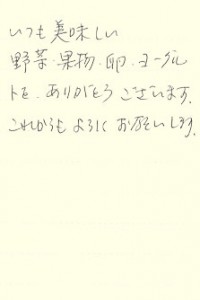 いつも美味しい
野菜・果物・卵・ヨーグル
トを、ありがとうございます。
これからもよろしくお願いします。